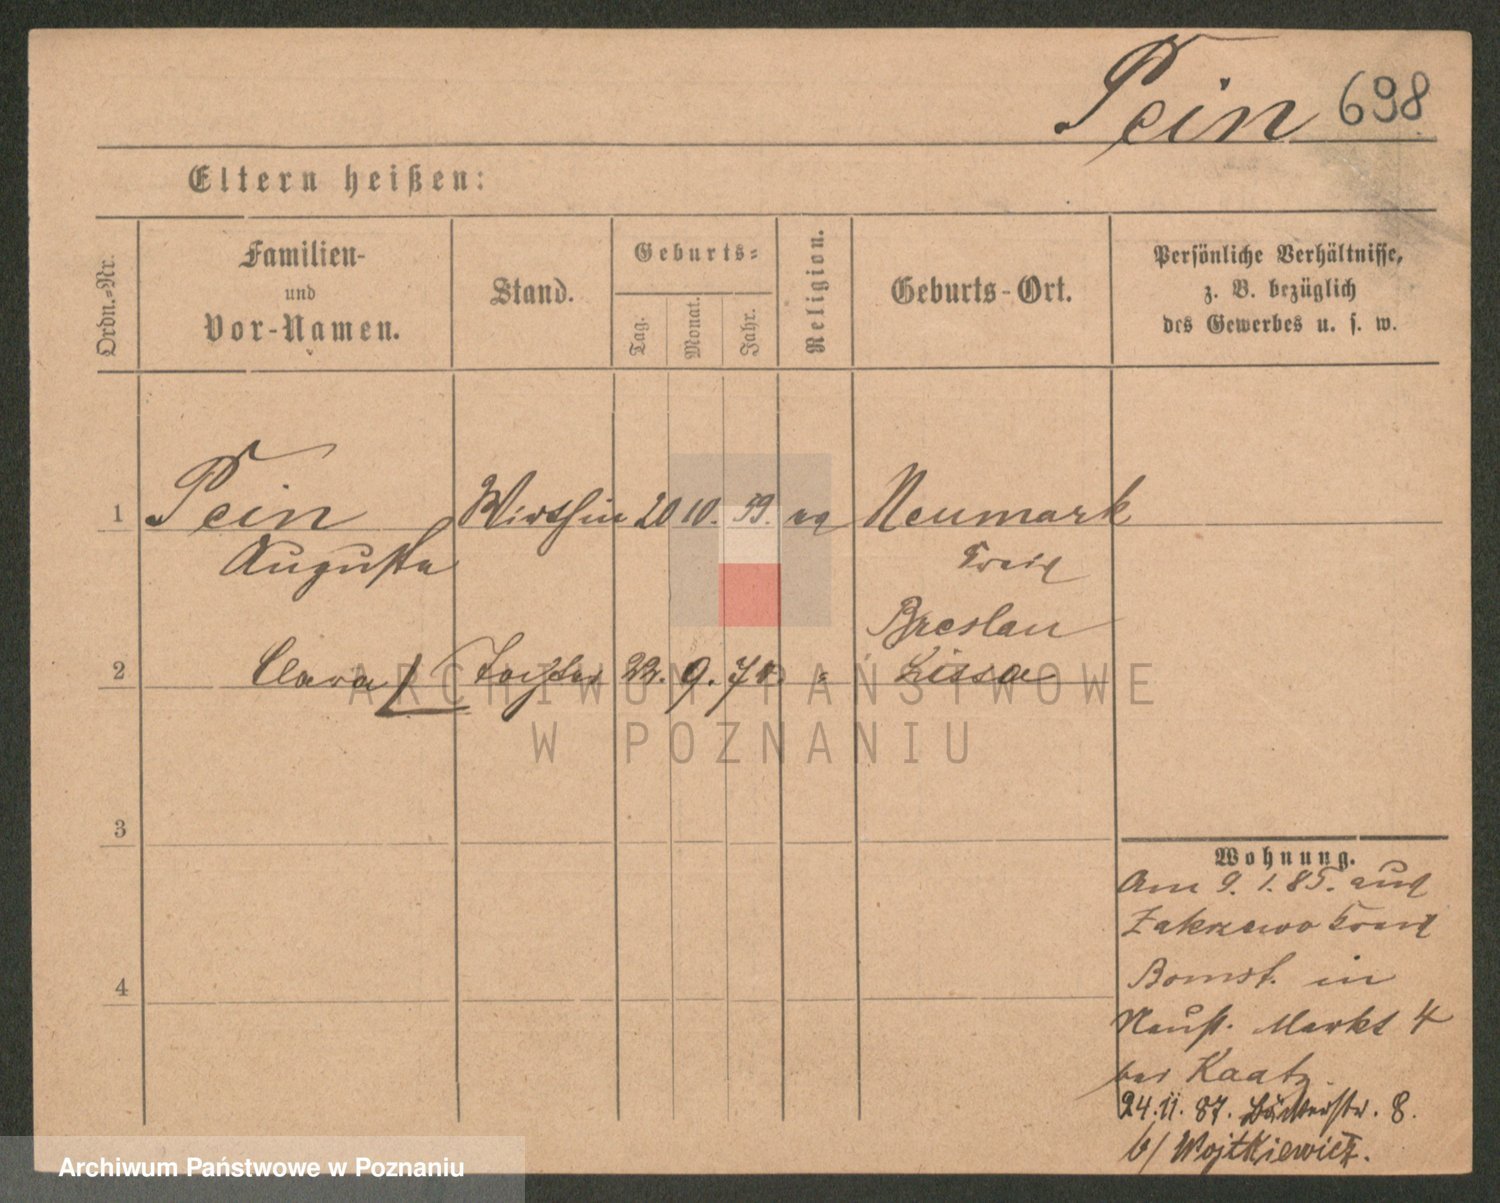 Pein 698
Eltern heißen:
Ordn.-Nr.
Familien-
und
Vor-Namen.
Stand.
Geburts-
Tag.
Monat.
Jahr.
Religion.
Geburts-Ort.
Persönliche Verhältnisse,
z. B. bezüglich
des Gewerbes u. s. w.
1 Pein Wirthin 20 10. 59. Neumark
Augusta Kreis
Breslau
2 Clara Tochter 22. 9. " Lissa
3
4
Wohnung.
Am 9. 1. 85. aus
Zakrzewo Kreis
Bomst. in
Neust. Markt 4
bei Kaatz.
24.11.87. Bäckerstr. 8.
b/ Wojtkiewicz.
ARCHIWUM PAŃSTWOWE
W POZNANIU
Archiwum Państwowe w Poznaniu